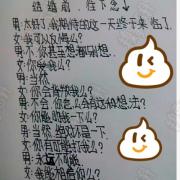 结婚前，往下念↓
男：太好了！我期待的这一天终于来临了！
女：我可以反悔么？
男：不，你甚至想都别想
女：你爱我么？
男：当然
女：你会背叛我么？
男：不会，你怎么会有这种想法？
女：你能吻我一下么？
男：当然，绝对不是一下
女：你有可能打我么？
男：永远不可能
女：我能相信你么？